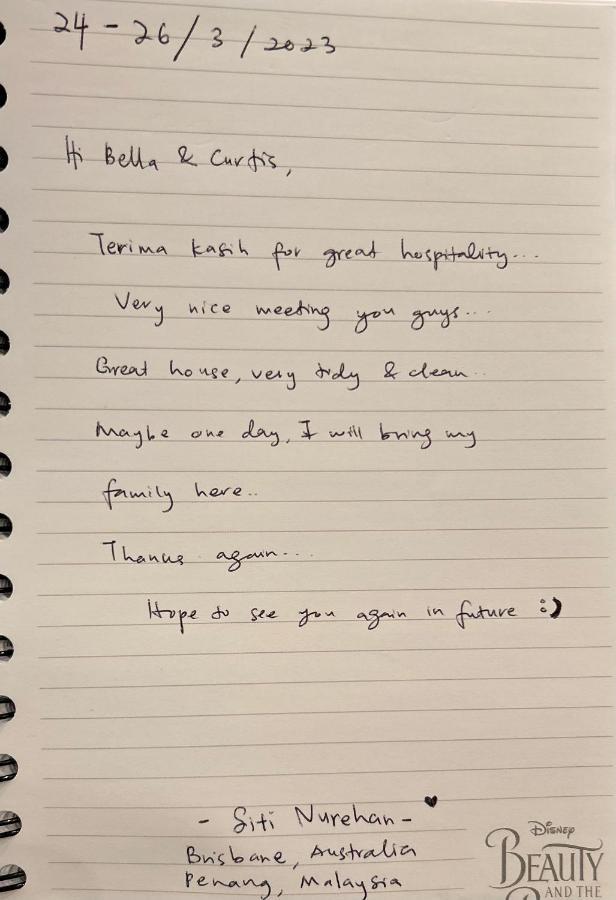 24 - 26/3/2023
Hi Bella & Curtis,
Terima kasih for great hospitality...
Very nice meeting you guys...
Great house, very tidy & clean..
Maybe one day, I will bring my
family here..
Thanks again...
Hope to see you again in future :)
- Siti Nurehan - ♥
Brisbane, Australia
Penang, Malaysia
Disney
BEAUTY
AND THE